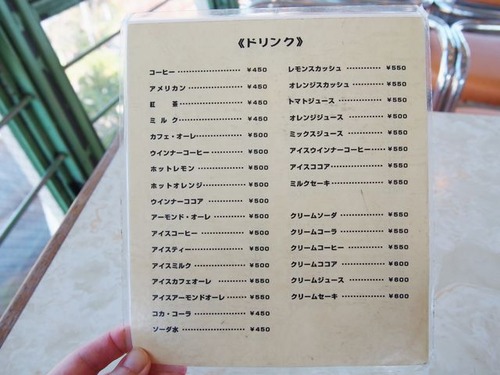 《ドリンク》
コーヒー ……………………… ¥450
アメリカン …………………… ¥450
紅　茶 ………………………… ¥450
ミ ル ク ……………………… ¥450
カフェ・オーレ ……………… ¥500
ウインナーコーヒー ………… ¥500
ホットレモン ………………… ¥500
ホットオレンジ ……………… ¥500
ウインナーココア …………… ¥500
アーモンド・オーレ ………… ¥500
アイスコーヒー ……………… ¥500
アイスティー ………………… ¥500
アイスミルク ………………… ¥500
アイスカフェオーレ ………… ¥550
アイスアーモンドオーレ …… ¥550
コカ・コーラ ………………… ¥450
ソーダ水 ……………………… ¥450
レモンスカッシュ …………… ¥550
オレンジスカッシュ ………… ¥550
トマトジュース ……………… ¥550
オレンジジュース …………… ¥500
ミックスジュース …………… ¥550
アイスウインナーコーヒー …… ¥550
アイスココア ………………… ¥550
ミルクセーキ ………………… ¥550
クリームソーダ ……………… ¥550
クリームコーラ ……………… ¥550
クリームコーヒー …………… ¥550
クリームココア ……………… ¥600
クリームジュース …………… ¥600
クリームセーキ ……………… ¥600